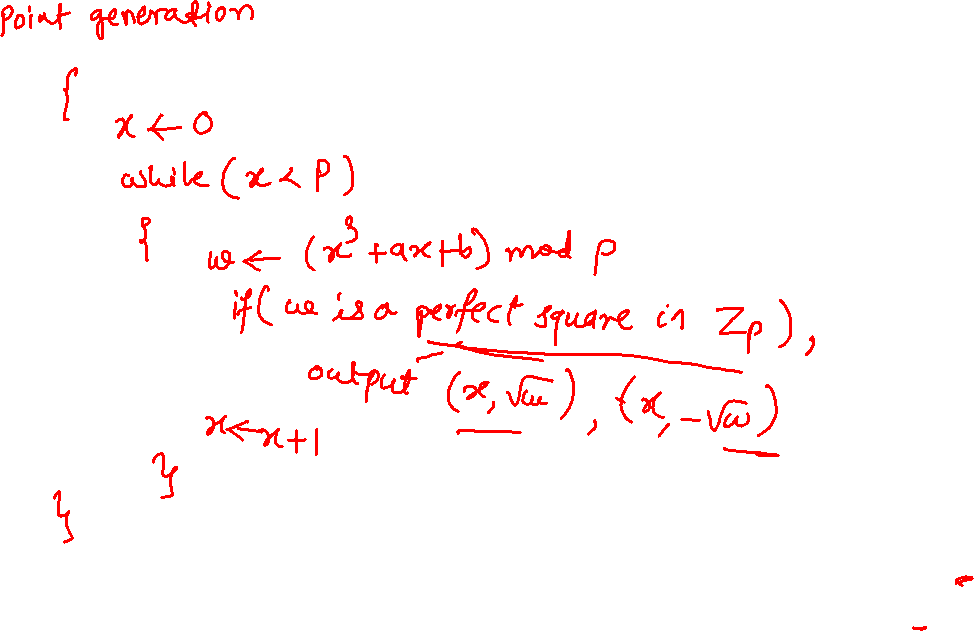 Point generation
{
x ← 0
while (x < P)
{
w ← (x³ + ax + b) mod p
if ( w is a perfect square in Zp ),
output (x, √w), (x, -√w)
x ← x + 1
}
}